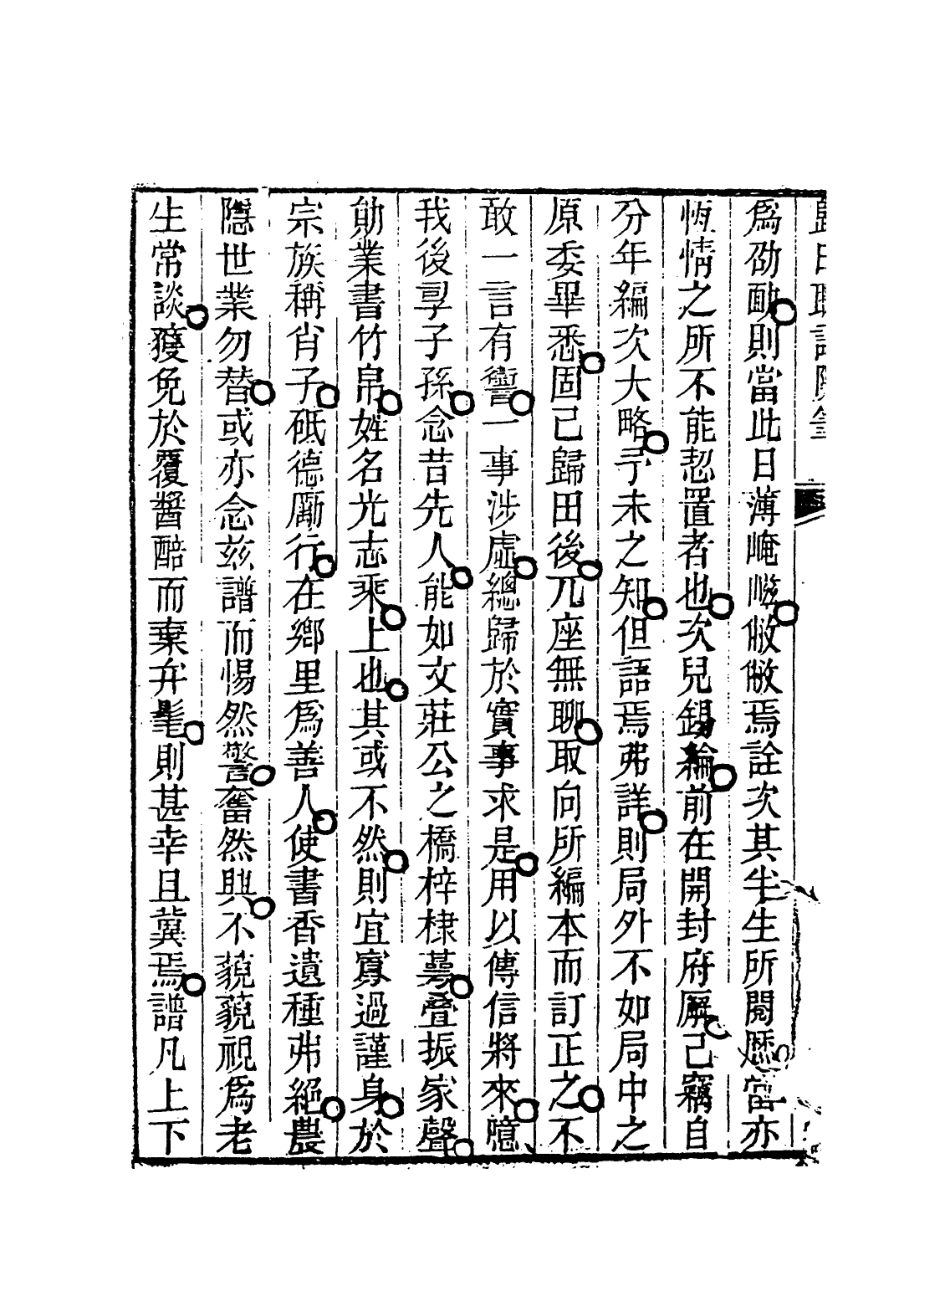 爲劭勔則當此日薄崦嵫焉詮次其半生所閱歷當亦
恆情之所不能恝置者也次兒錫綸前在開封府廨己竊自
分年編次大略予未之知但語焉弗詳則局外不如局中之
原委畢悉固己歸田後兀座無聊取向所編本而訂正之不
敢一言有讆一事涉虛總歸於實事求是用以傳信將來噫
我後子孫念昔先人能如文莊公之橋梓棣萼疊振家聲
勛業書竹帛姓名光志乘上也其或不然則宜寡過謹身於
宗族稱肖子砥德勵行在鄉里爲善人使書香遺種弗絕農
隱世業勿替或亦念茲譜而惕然警奮然興不藐藐視爲老
生常談獲免於覆醬醅而棄弁髦則甚幸且冀焉譜凡上下